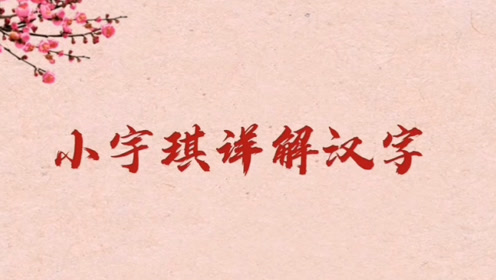 小宇琪详解汉字